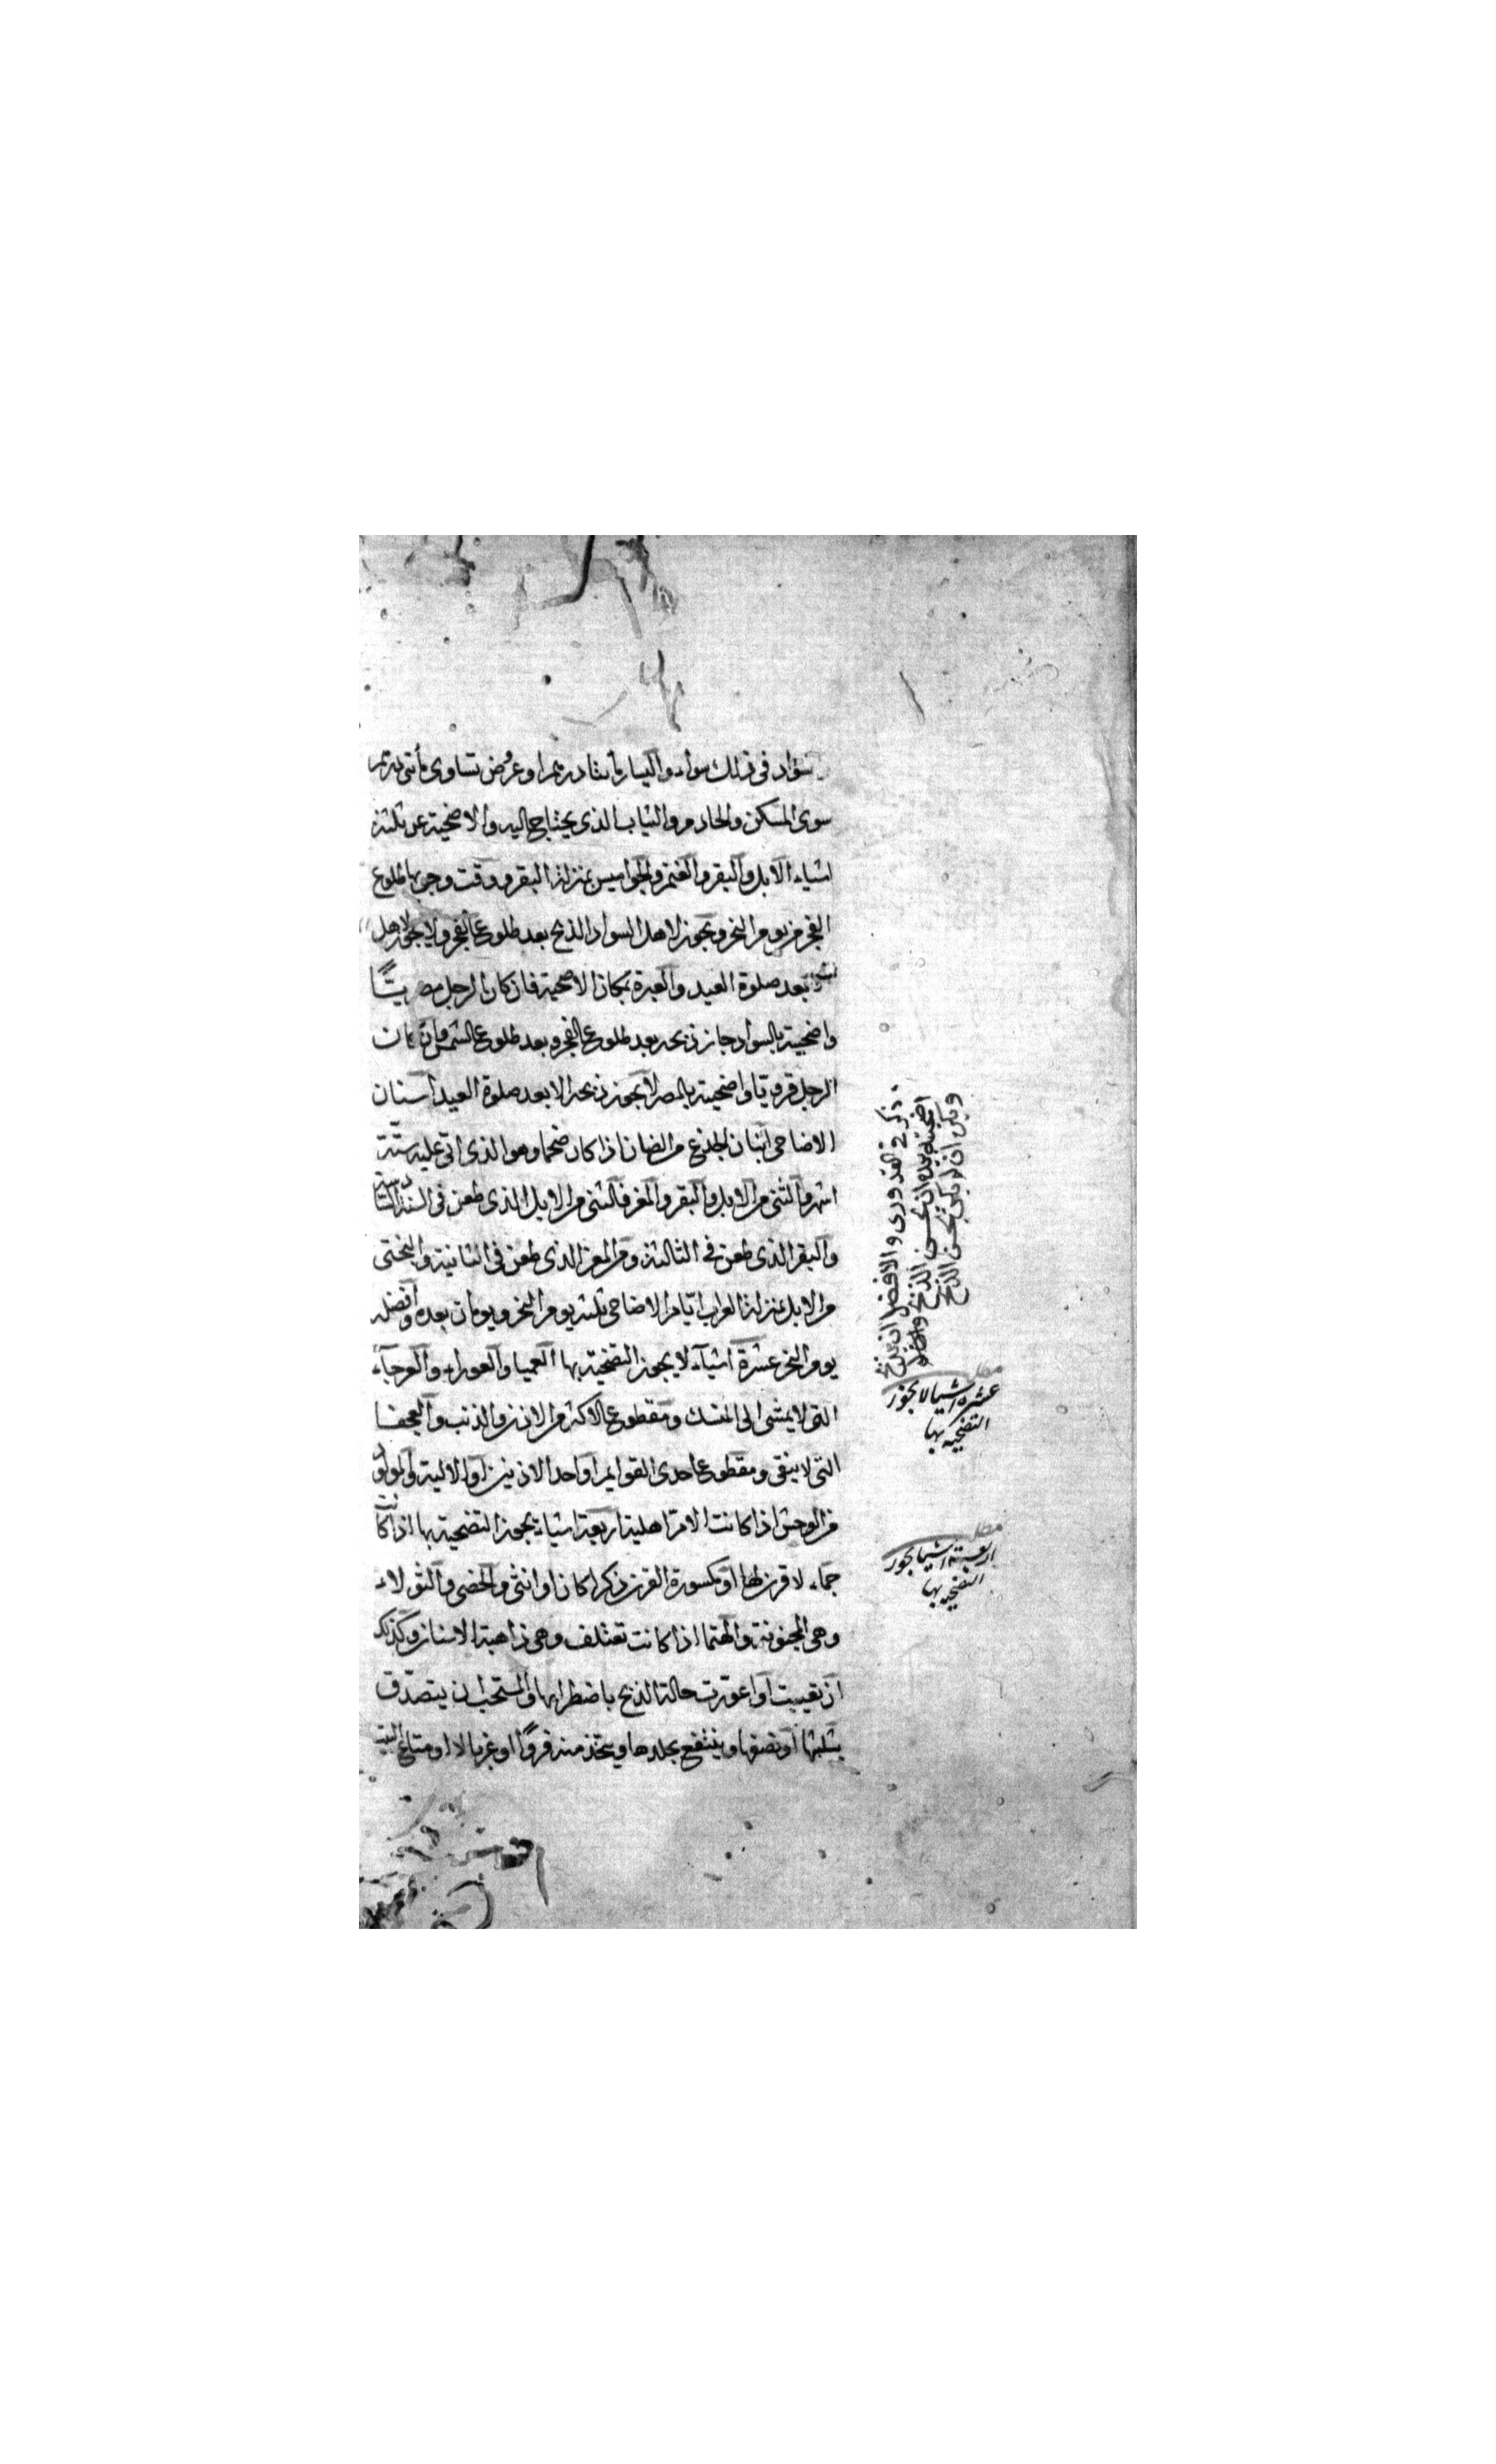 السواد في ذلك سواء واليسار مأتا درهم او عروض تساوى مأتى درهم
سوى المسكن والخادم والثياب الذى يحتاج اليه والاضحية عن ثلثة
اشياء الابل والبقر والغنم والجواميس بمنزلة البقر ووقت وجوبها طلوع
الفجر من يوم النحر ويجوز لاهل السواد الذبح بعد طلوع الفجر ولا يجوز لاهل
بعد صلوة العيد والعبرة بمكان الاضحية فان كان الرجل مصريًّا
واضحيته بالسواد جاز ذبحه بعد طلوع الفجر وبعد طلوع الشمس وان كان
الرجل قرويّا واضحيته بالمصر لا يجوز ذبحه الا بعد صلوة العيد اسنان
الاضاحى اثنان الجذع من الضان اذا كان ضخما وهو الذى اتى عليه ستة
اشهر والثنى من الابل والبقر والمعز فالثنى من الابل الذى طعن فى السنة السادسة
والبقر الذى طعن فى الثالثة ومن المعز الذى طعن فى الثانية والبختى
من الابل بمنزلة العراب ايّام الاضاحى ثلثة يوم النحر ويومان بعده وافضله
يوم النحر عشرة اشيآء لا يجوز التضحية بها العميا والعوراء والعرجآء
التى لا يمشى الى المنسك ومقطوع الاكثر من الاذن والذنب والعجفا
التى لا ينقى ومقطوع احدى القوايم او احد الاذنين او الالية والمولود
من الوحش اذا كانت الامّ اهلية اربعة اشياء يجوز التضحية بها اذا كانت
جمّاء لا قرن لها او مكسورة القرن ذكرا كان او انثى والخصى والثولاء
وهى المجنونة والهتما اذا كانت تعتلف وهى ذاهبة الاسنان وكذلك
ان تعيبت او اعورّت حالة الذبح باضطرابها والمستحب ان يتصدّق
بثلثها او نصفها وينتفع بجلدها ويتخذ منه فروًا او غربالا او متاع البيت
ذكر فى القدورى والافضل ان يذبح
اضحيته بيده ان كان يحسن الذبح
ويكره ان لم يكن يحسن الذبح
مطلب
عشرة اشيا لا يجوز
التضحيه بها
مطلب
اربعة اشيا يجوز
التضحيه بها